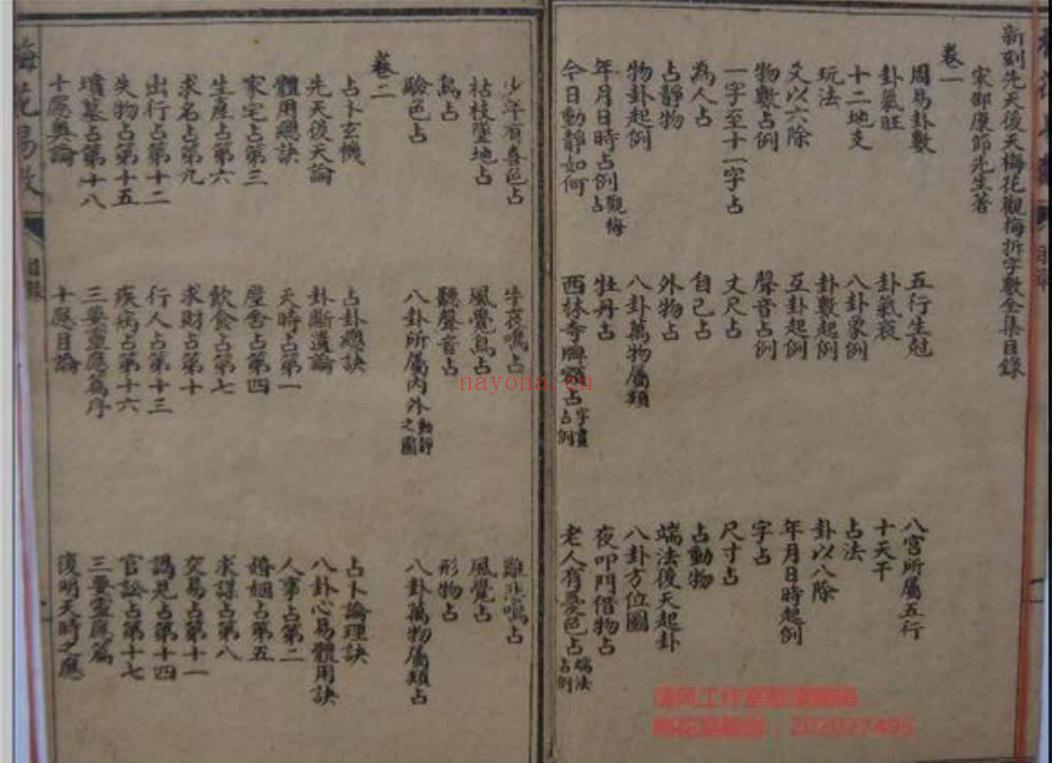 新刻先天後天梅花觀梅拆字數全集目錄
宋邵康節先生著
卷一
周易卦數 五行生尅 八宮所屬五行
卦氣旺 卦氣衰 十天干
十二地支 八卦象例 占法
玩法 卦數起例 卦以八除
爻以六除 互卦起例 年月日時起例
物數占例 聲音占例 字占
一字至十一字占 丈尺占 尺寸占
為人占 自己占 占動物
占靜物 外物占 端法後天起卦
物卦起例 八卦萬物屬類 八卦方位圖
年月日時占例觀梅占 牡丹占 夜叩門借物占
今日動靜如何 西林寺牌額占字畫占例 老人有憂色占端法占例
少年有喜色占 牛哀鳴占 雞悲鳴占
枯枝墜地占 風覺鳥占 風覺占
鳥占 聽聲音占 形物占
驗色占 八卦所屬內外動靜之圖 八卦萬物屬類占
卷二
占卜玄機 占卦總訣 占卜論理訣
先天後天論 卦斷遺論 八卦心易體用訣
體用總訣 天時占第一 人事占第二
家宅占第三 屋舍占第四 婚姻占第五
生產占第六 飲食占第七 求謀占第八
求名占第九 求財占第十 交易占第十一
出行占第十二 行人占第十三 謁見占第十四
失物占第十五 疾病占第十六 官訟占第十七
墳墓占第十八 三要靈應篇序 三要靈應篇
十應奧論 十應目論 復明天時之應
梅花易數
目錄
nayona.cn
清风工作室整理编辑